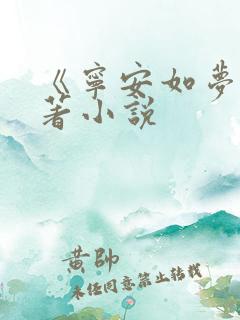 《寧安如夢
著小說
黃帥
未經同意禁止轉載